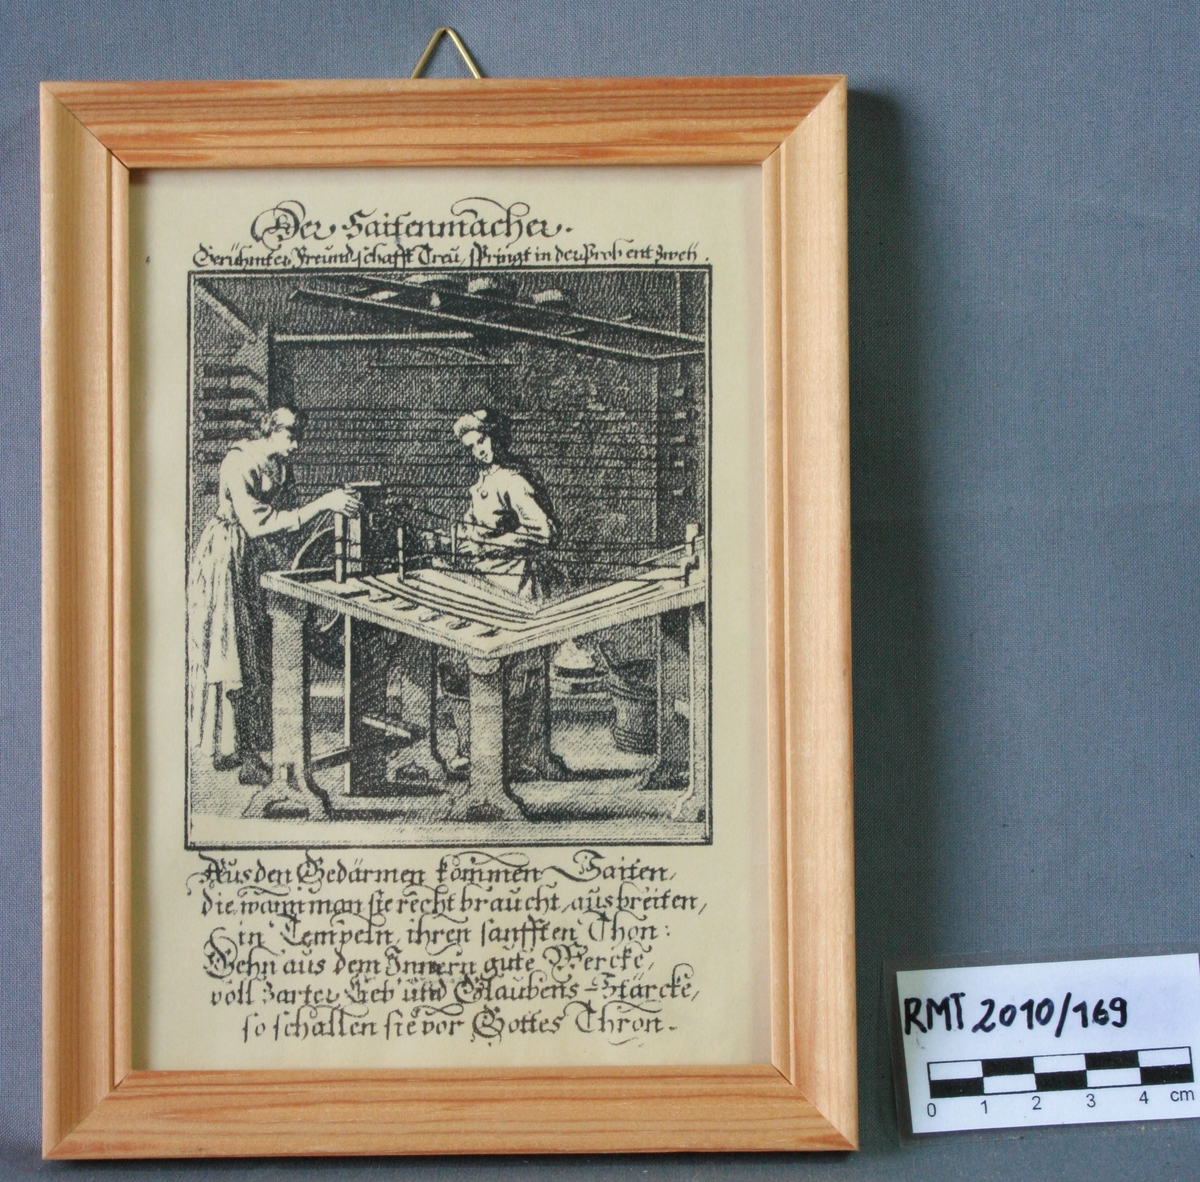 Der Saitenmacher.
Berühmter Freundschafft Treu, springt in der Prob entzweÿ.
Aus den Gedärmen kommen Saiten,
die, wann man sie recht braucht, ausbreiten,
in Tempeln, ihren sanfften Thon:
Gehn aus dem Innern gute Wercke,
voll zarter Lieb und Glaubens-Stärcke,
so schallen sie vor Gottes Thron.
RMT 2010/169
0 1 2 3 4 cm